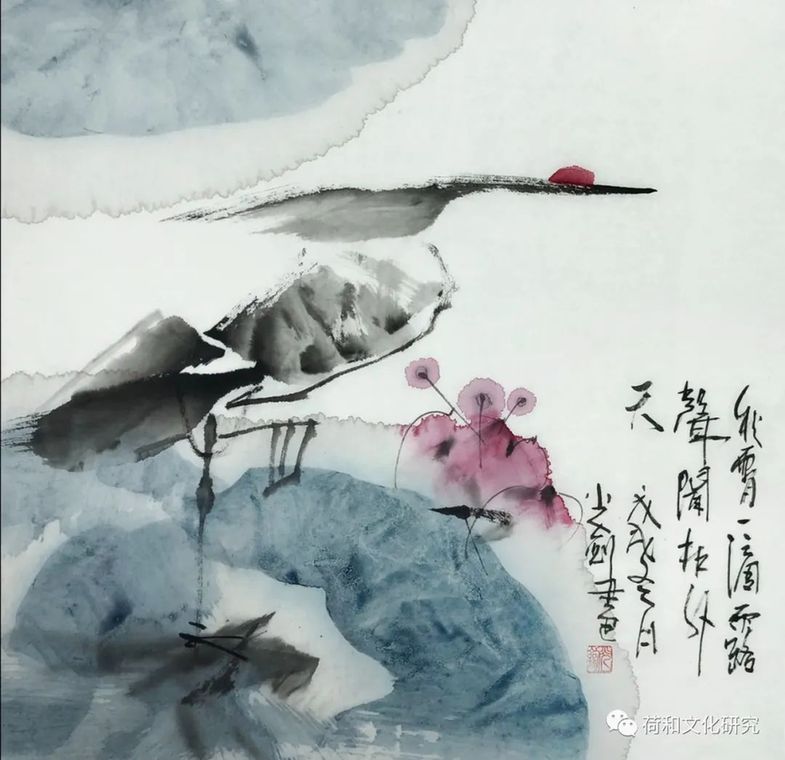 秋霄一滴露
聲聞林外
天
戊戌冬月
小剑
荷和文化研究